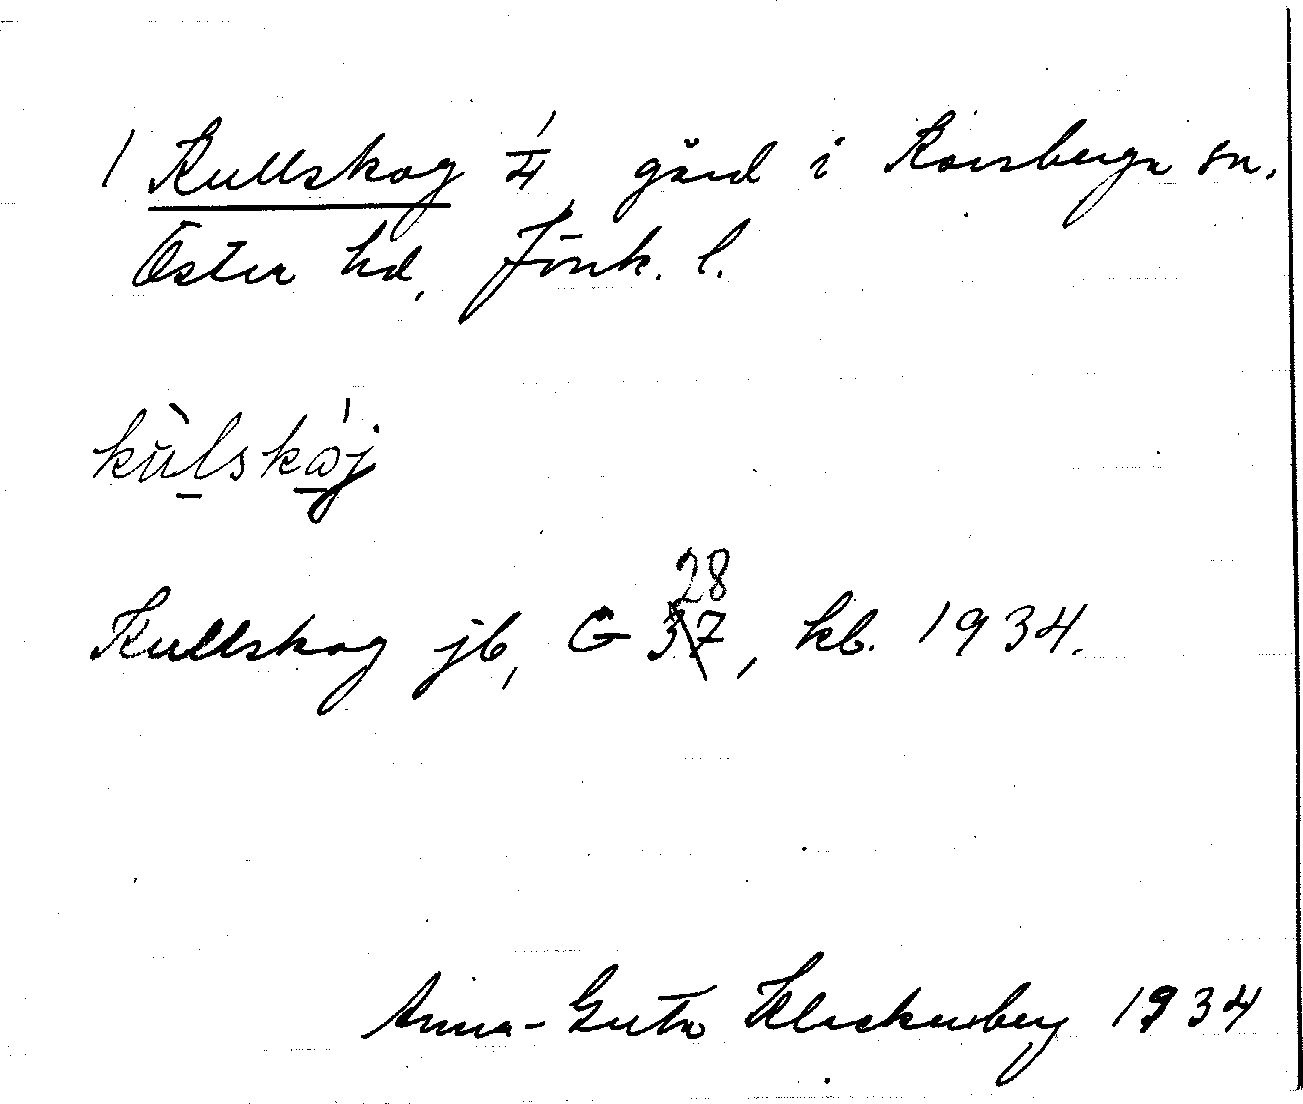 1 Kullskog 1/4 gård i Korsberga sn.
Öster hd, Jönk. l.
kùlskåj
28
Kullskog jb, G 37, kb. 1934.
Anna-Greta Klackenberg 1934